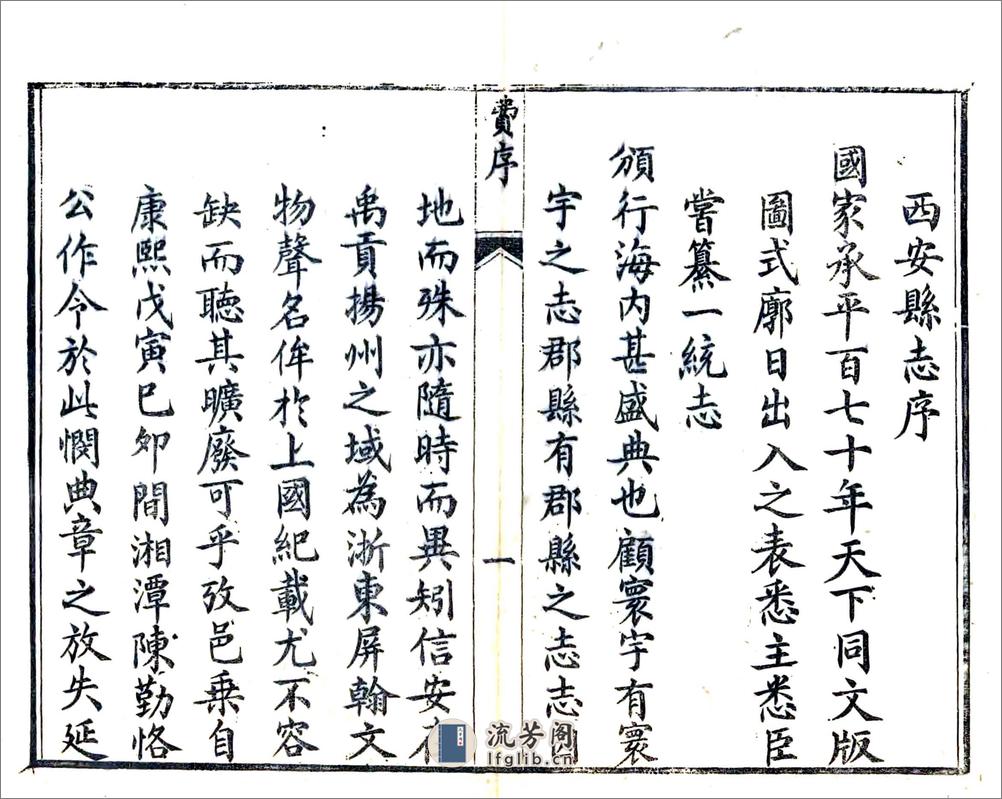 西安縣志序
國家承平百七十年天下同文版
圖式廓日出入之表悉主悉臣
嘗纂一統志
頒行海內甚盛典也顧寰宇有寰
宇之志郡縣有郡縣之志志
費序
一
地而殊亦隨時而異矧信安
禹貢揚州之域為浙東屏翰文
物聲名侔於上國紀載尤不容
缺而聽其曠廢可乎攷邑乗自
康熙戊寅巳卯間湘潭陳勤恪
公作令於此憫典章之放失延
流芳阁
lfglib.cn